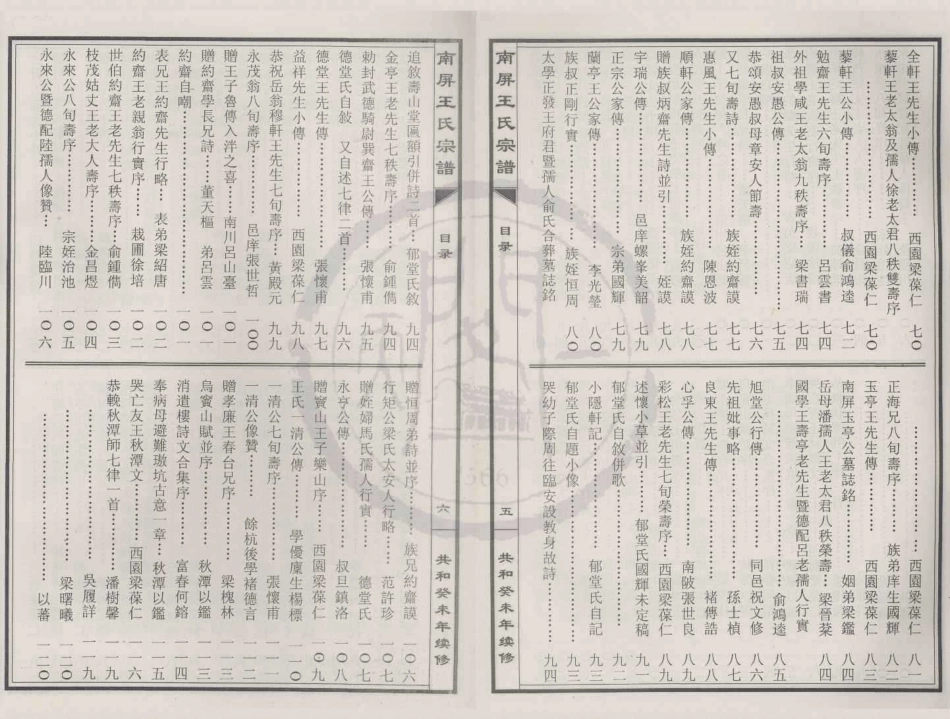 南屏王氏宗譜
目录
五
共和癸未年续修
全軒王先生小傳⋯⋯西園梁葆仁 七〇
藜軒王老太翁及孺人徐老太君八秩雙壽序
⋯⋯西園梁葆仁 七〇
藜軒王公小傳⋯⋯叔儀俞鴻逵 七二
勉齋王先生六旬壽序⋯⋯呂雲書 七四
外祖學咸王老太翁九秩壽序⋯⋯梁書瑞 七四
祖叔安愚公傳⋯⋯ 七五
恭頌安愚叔母章安人節壽⋯⋯ 七六
又七旬壽詩⋯⋯族姪約齋謨 七六
惠風王先生小傳⋯⋯陳恩波 七七
順軒公家傳⋯⋯族姪約齋謨 七八
贈族叔炳齋先生詩並引⋯⋯姪謨 七八
宇瑞公傳⋯⋯邑庠螺峯美韶 七九
正宗公家傳⋯⋯宗弟國輝 七九
蘭亭王公家傳⋯⋯李光瑩 八〇
族叔正剛行實⋯⋯族姪恒周 八〇
太學正發王府君暨孺人俞氏合葬墓誌銘
⋯⋯西園梁葆仁 八一
正海兄八旬壽序⋯⋯族弟庠生國輝 八二
玉亭王先生傳⋯⋯西園梁葆仁 八三
南屏玉亭公墓誌銘⋯⋯姻弟梁鑑 八四
岳母潘孺人王老太君八秩榮壽⋯⋯梁晉棻 八四
國學王壽亭老先生暨德配呂老孺人行實
⋯⋯俞鴻逵 八五
旭堂公行傳⋯⋯同邑祝文修 八六
先祖妣事略⋯⋯孫士楨 八七
良東王先生傳⋯⋯褚傳誥 八八
心孚公傳⋯⋯南陂張世良 八八
彩松王老先生七旬榮壽序⋯⋯西園梁葆仁 八九
贈廣叔詩⋯⋯ 九〇
述懷小草並引⋯⋯郁堂氏國輝未定稿 九一
郁堂氏自敘併歌⋯⋯ 九二
小隱軒記⋯⋯郁堂氏自記 九二
郁堂氏自題小像⋯⋯ 九三
哭幼子際周往臨安設教身故詩⋯⋯ 九四
南屏王氏宗譜
目录
六
共和癸未年续修
追敘壽山堂匾額引併詩二首⋯⋯郁堂氏敘 九四
金亭王老先生七秩壽序⋯⋯俞鍾儁 九四
勅封武德騎尉巽齋王公傳⋯⋯張懷甫 九五
德堂氏自敍 又自述七律二首⋯⋯ 九六
德堂王先生傳⋯⋯張懷甫 九七
益祥先生小傳⋯⋯西園梁葆仁 九八
恭祝岳翁穆軒王先生七旬壽序⋯⋯黃殿元 九九
永茂翁八旬壽序⋯⋯邑庠張世哲 一〇〇
贈王子魯傳入泮之喜⋯⋯南川呂山臺 一〇一
贈約齋學長兄詩⋯⋯董天樞 弟呂雲 一〇一
約齋自嘲⋯⋯ 一〇一
表兄王約齋先生行略⋯⋯表弟梁紹唐 一〇二
約齋王老親翁行實序⋯⋯栽圃徐培 一〇二
世伯約齋王老先生七秩壽序⋯⋯俞鍾儁 一〇三
枝茂姑丈王老大人壽序⋯⋯金昌煜 一〇四
永來公八旬壽序⋯⋯宗姪治池 一〇五
永來公暨德配陸孺人像贊⋯⋯陸臨川 一〇六
贈恒周弟詩並序⋯⋯族兄約齋謨 一〇六
行矩公梁氏太安人行略⋯⋯范許珍 一〇七
贈姪婦馬氏孺人行實⋯⋯德堂氏 一〇七
永亨公傳⋯⋯叔旦鎮洛 一〇八
贈寳山王子樂山序⋯⋯西園梁葆仁 一〇九
王氏一清公傳⋯⋯學優廩生楊標 一一〇
一清公七旬壽序⋯⋯張懷甫 一一一
一清公像贊⋯⋯餘杭後學褚德言 一一二
贈孝廉王春台兄序⋯⋯梁槐林 一一三
烏寳山賦並序⋯⋯秋潭以鑑 一一三
消遣樓詩文合集序⋯⋯富春何鎔 一一四
奉病母避難璈坑古意一章⋯⋯秋潭以鑑 一一五
哭亡友王秋潭文⋯⋯西園梁葆仁 一一六
恭輓秋潭師七律一首⋯⋯潘樹馨 一一九
⋯⋯吳履詳 一一九
⋯⋯梁曙曦 一二〇
⋯⋯以蕃 一二〇